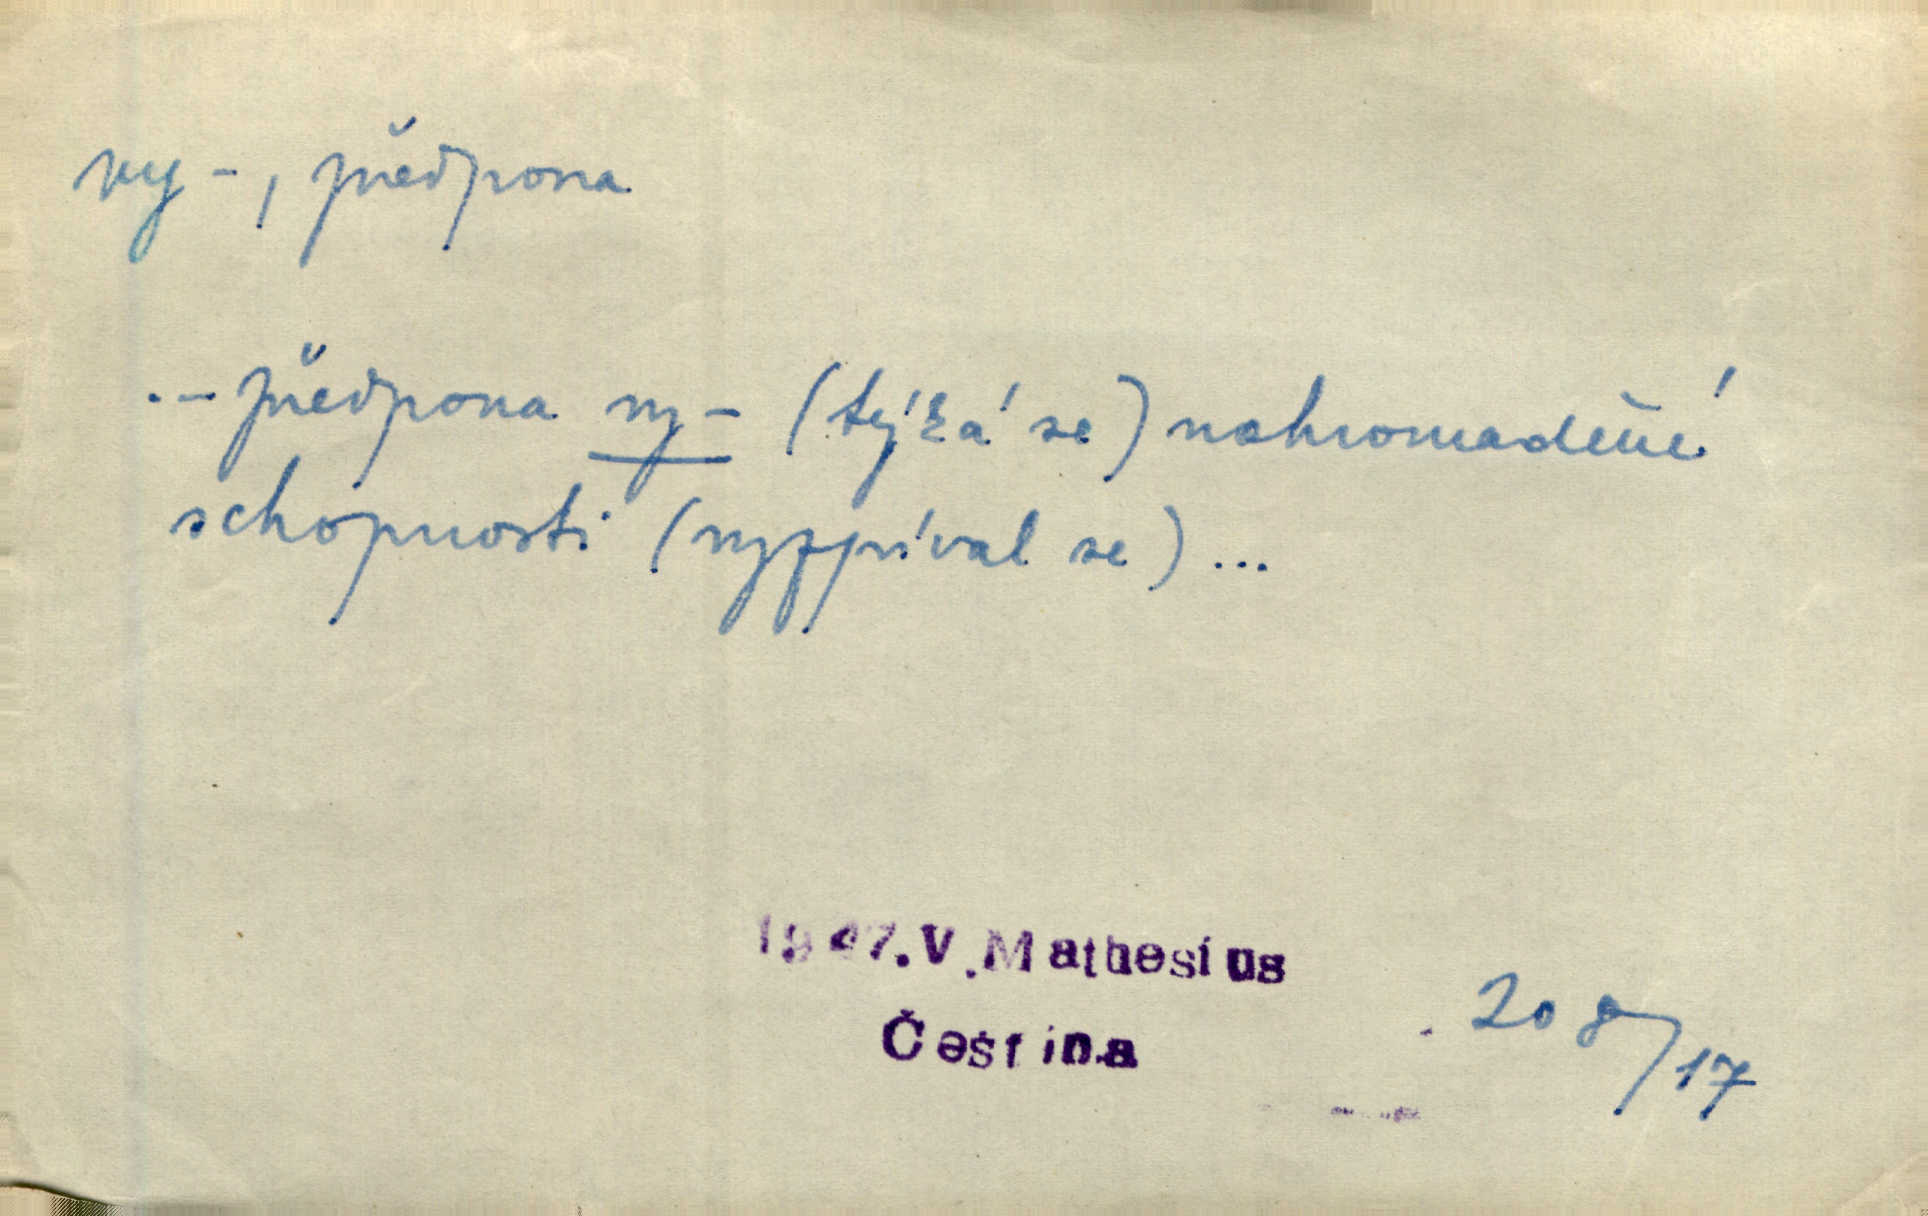 vy-, předpona
.– předpona vy- (týká se) nahromaděné
schopnosti (vyzpíval se) ...
1947.V.Mathesius
Čeština
208/17